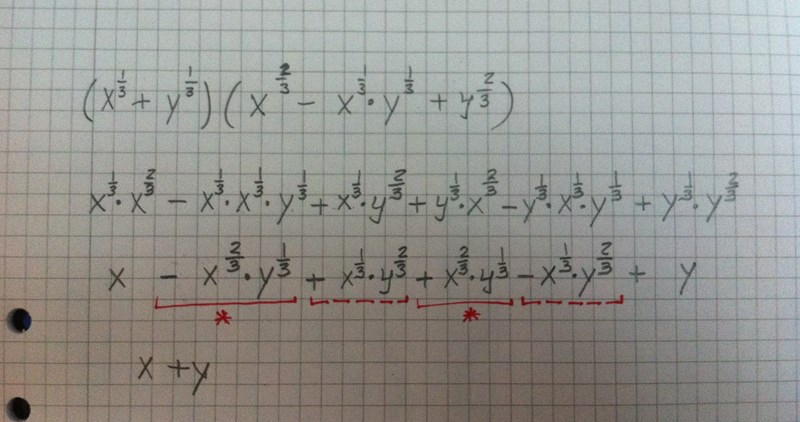 (x^{1/3} + y^{1/3})(x^{2/3} - x^{1/3}·y^{1/3} + y^{2/3})
x^{1/3}·x^{2/3} - x^{1/3}·x^{1/3}·y^{1/3} + x^{1/3}·y^{2/3} + y^{1/3}·x^{2/3} - y^{1/3}·x^{1/3}·y^{1/3} + y^{1/3}·y^{2/3}
x - x^{2/3}·y^{1/3} + x^{1/3}·y^{2/3} + x^{2/3}·y^{1/3} - x^{1/3}·y^{2/3} + y
* *
x + y